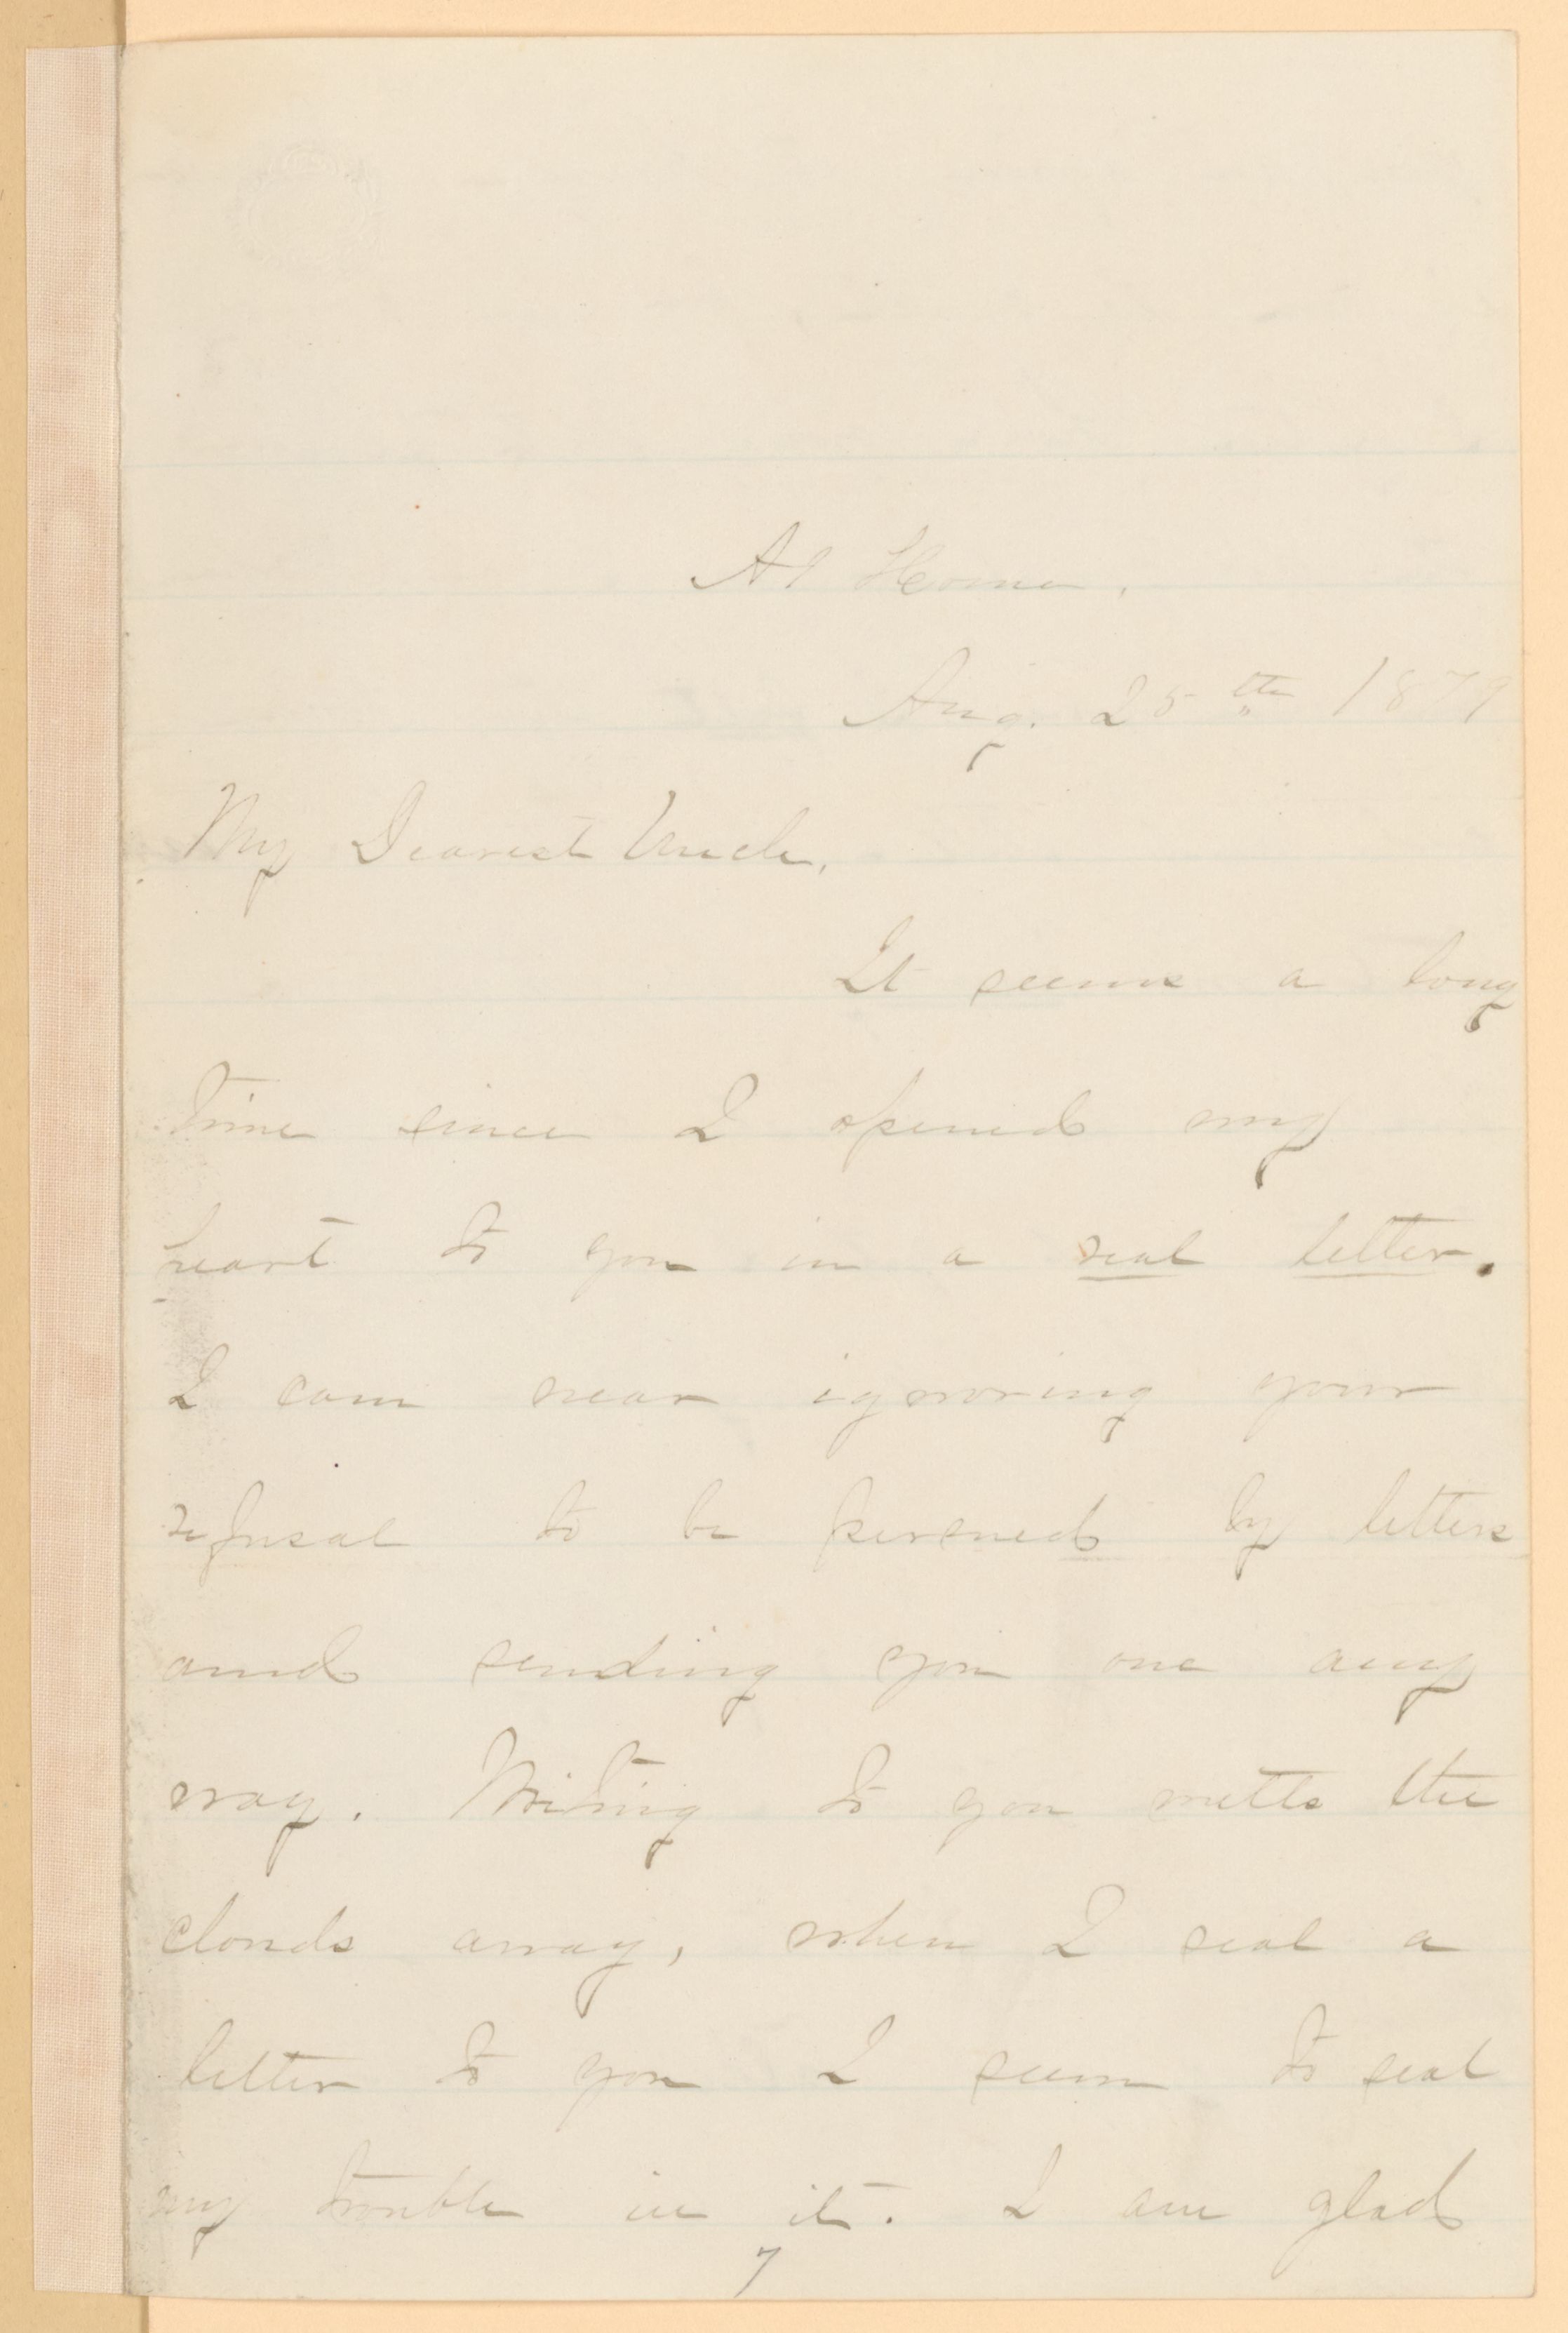 At Home.
Aug. 25th 1879
My Dearest Uncle,
It seems a long
time since I opened my
heart to you in a real letter.
I came near ignoring your
refusal to be pursued by letters
and sending you one any
way. Writing to you melts the
clouds away, when I seal a
letter to you I seem to seal
my trouble in it. I am glad
7